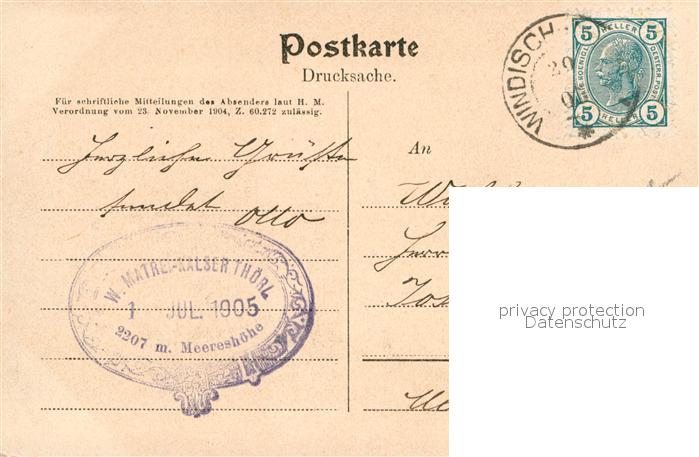 Postkarte
Drucksache.
Für schriftliche Mitteilungen des Absenders laut H. M.
Verordnung vom 23. November 1904, Z. 60.272 zulässig.
Herzliche Grüße
sendet Otto
W. MATREI-KALSER THÖRL
1 JUL. 1905
2207 m. Meereshöhe
WINDISCH
5 HELLER 5
5 HELLER 5
An
privacy protection
Datenschutz